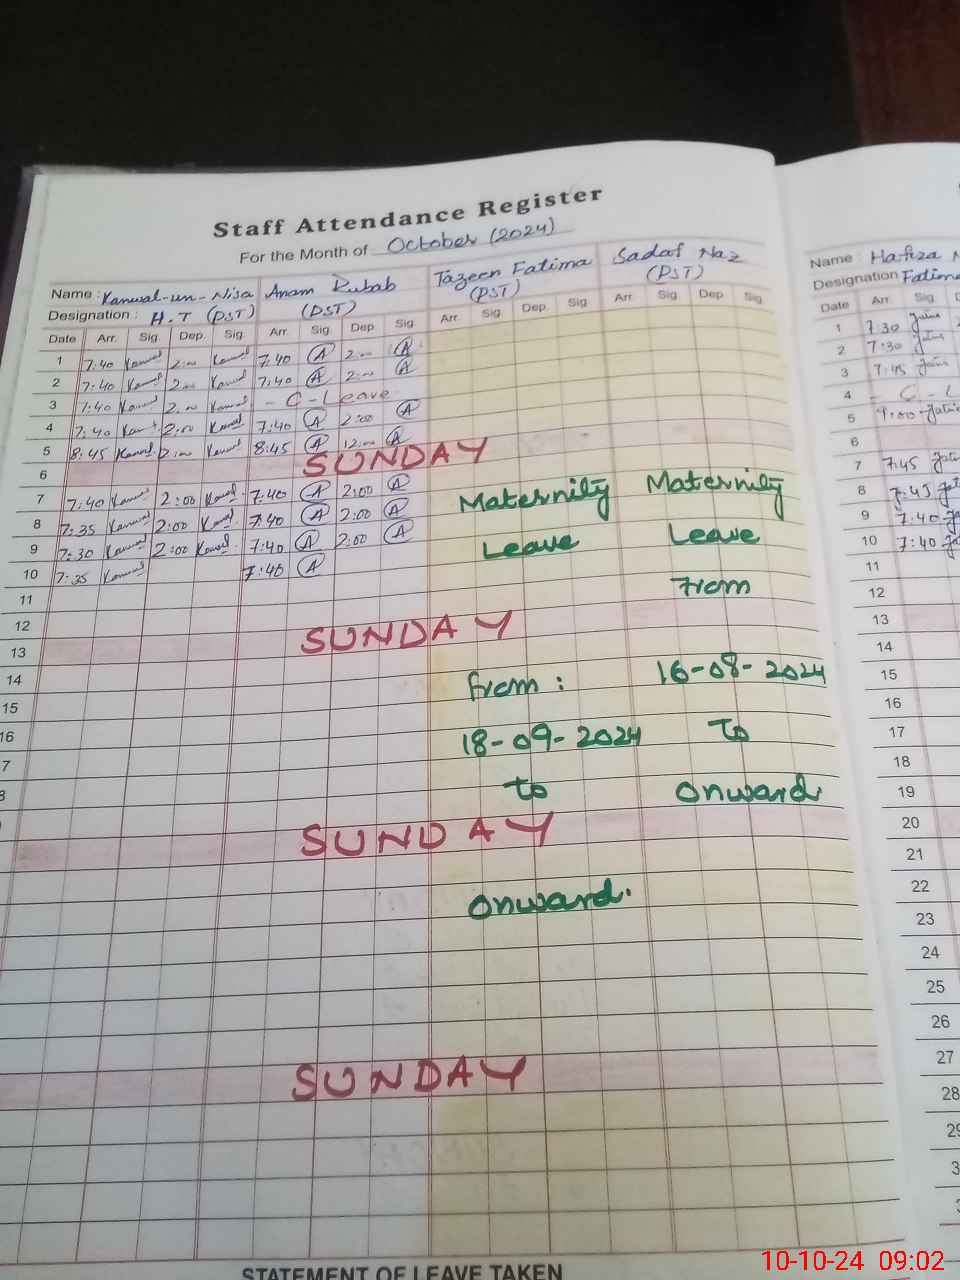 Staff Attendance Register
For the Month of October (2024)
Name : Kanwal-un-Nisa Anam Rubab Tazeen Fatima Sadaf Naz
Designation : H.T (PST) (PST) (PST) (PST)
Date Arr. Sig. Dep. Sig. Arr. Sig. Dep. Sig. Arr. Sig. Dep. Sig. Arr. Sig. Dep. Sig.
1 7:40 Kanwal 2:00 Kanwal 7:40 A 2:00 A
2 7:40 Kanwal 2:00 Kanwal 7:40 A 2:00 A
3 7:40 Kanwal 2:00 Kanwal - C - Leave -
4 7:40 Kanwal 2:00 Kanwal 7:40 A 2:00 A
5 8:45 Kanwal 2:00 Kanwal 8:45 A 12:00 A
6 SUNDAY
7 7:40 Kanwal 2:00 Kanwal 7:40 A 2:00 A Maternily Maternily
8 7:35 Kanwal 2:00 Kanwal 7:40 A 2:00 A
9 7:30 Kanwal 2:00 Kanwal 7:40 A 2:00 A Leave Leave
10 7:35 Kanwal 7:40 A
11 From
12
13 SUNDAY
14 From : 16-08-2024
15
16 18-09-2024 To
7
8 to onward
SUNDAY
onward.
SUNDAY
STATEMENT OF LEAVE TAKEN
Name : Hafiza
Designation Fatima
Date Arr. Sig.
1 7:30
2 7:30
3 7:45
4 - C - L
5 9:00
6
7 7:45
8 7:45
9 7:40
10 7:40
11
12
13
14
15
16
17
18
19
20
21
22
23
24
25
26
27
28
29
10-10-24 09:02